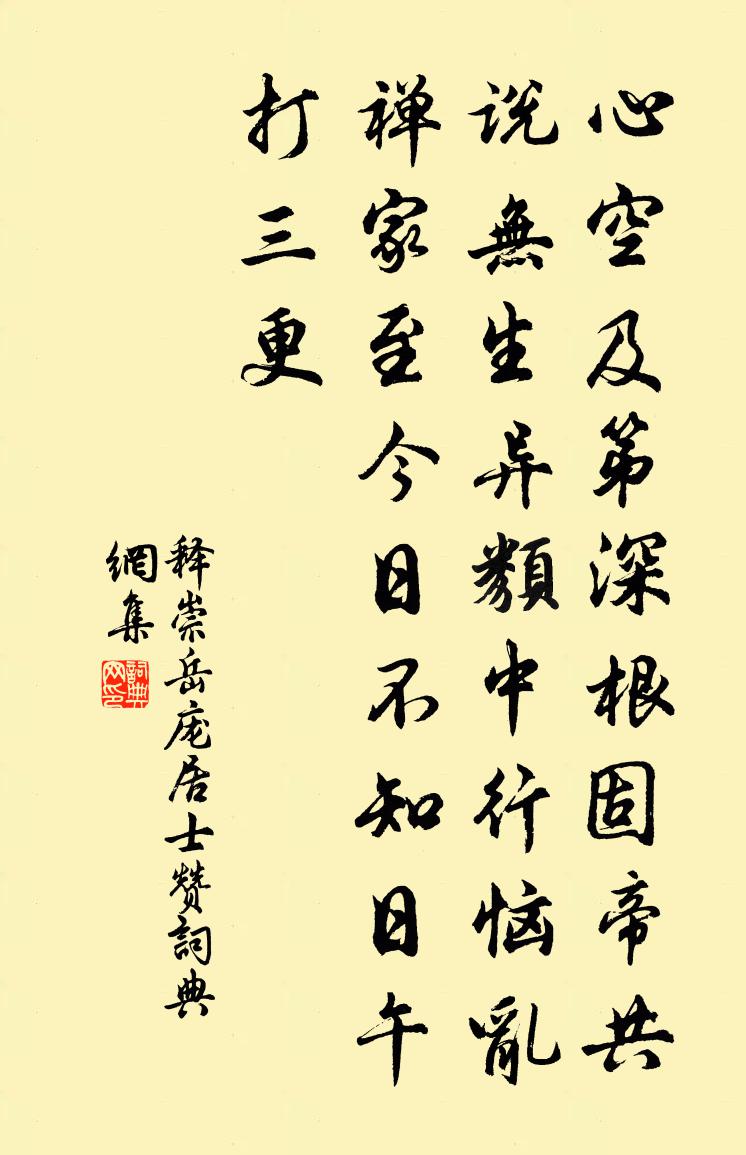 心空及第深根固帝共
说無生异類中行恼亂
禅家至今日不知日午
打三更
释崇岳庞居士赞詞典
網集
詞典
网印